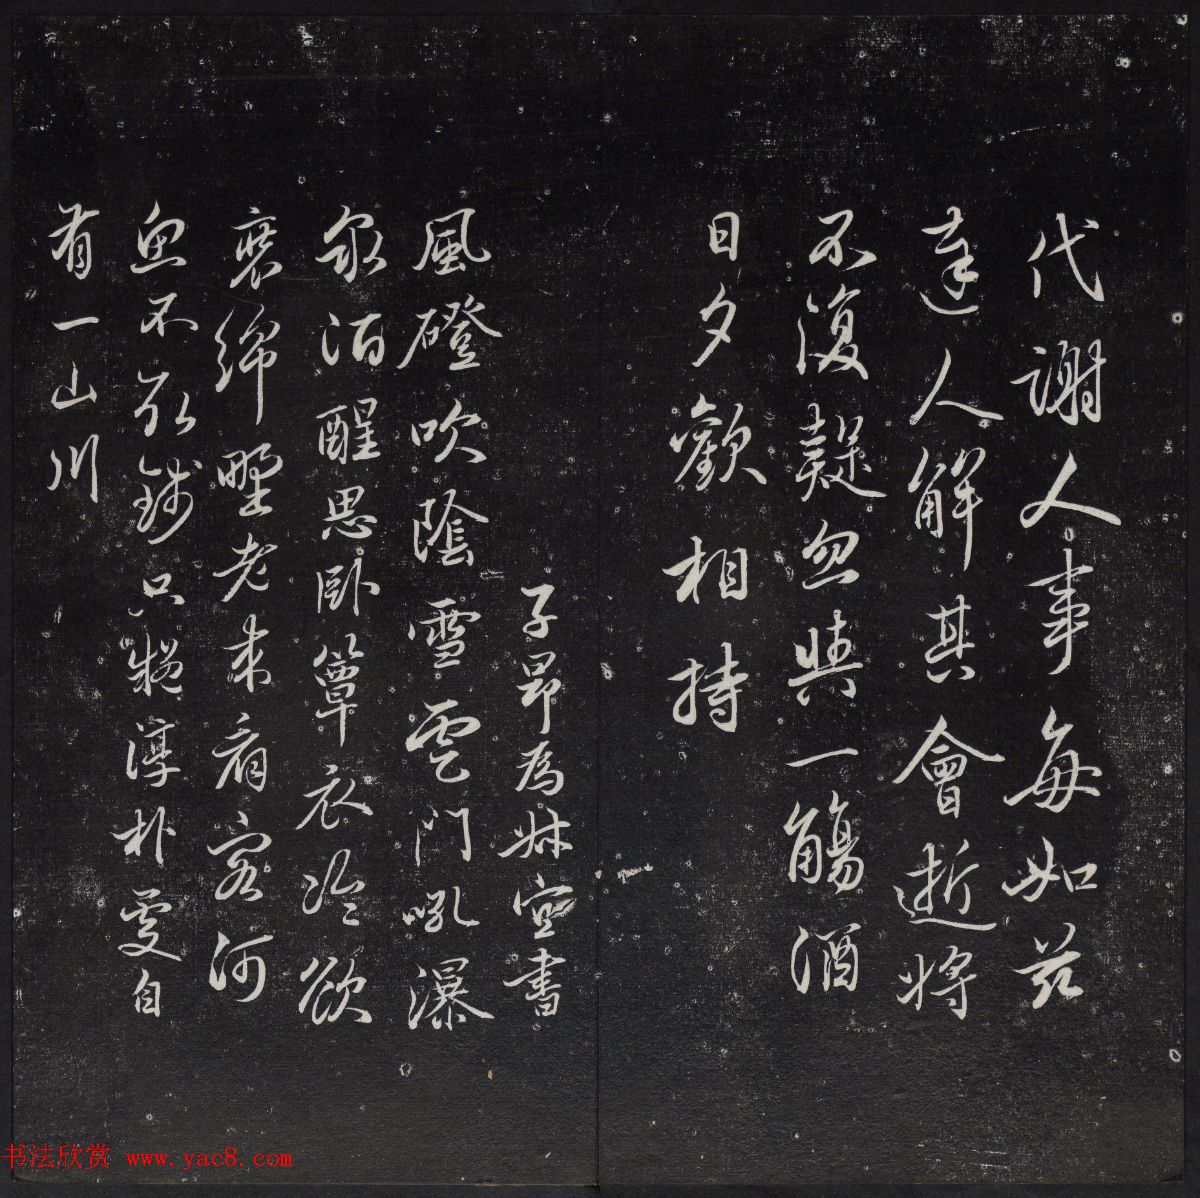 代謝人事每如茲
達人解其會逝將
不復疑忽與一觴酒
日夕歡相持
子昂為書
風磴吹陰雪雲門吼瀑
泉酒醒思臥簟衣冷欲
裝綿野老来看客河
魚不取錢只疑淳朴處自
有一山川
书法欣赏 www.yac8.com